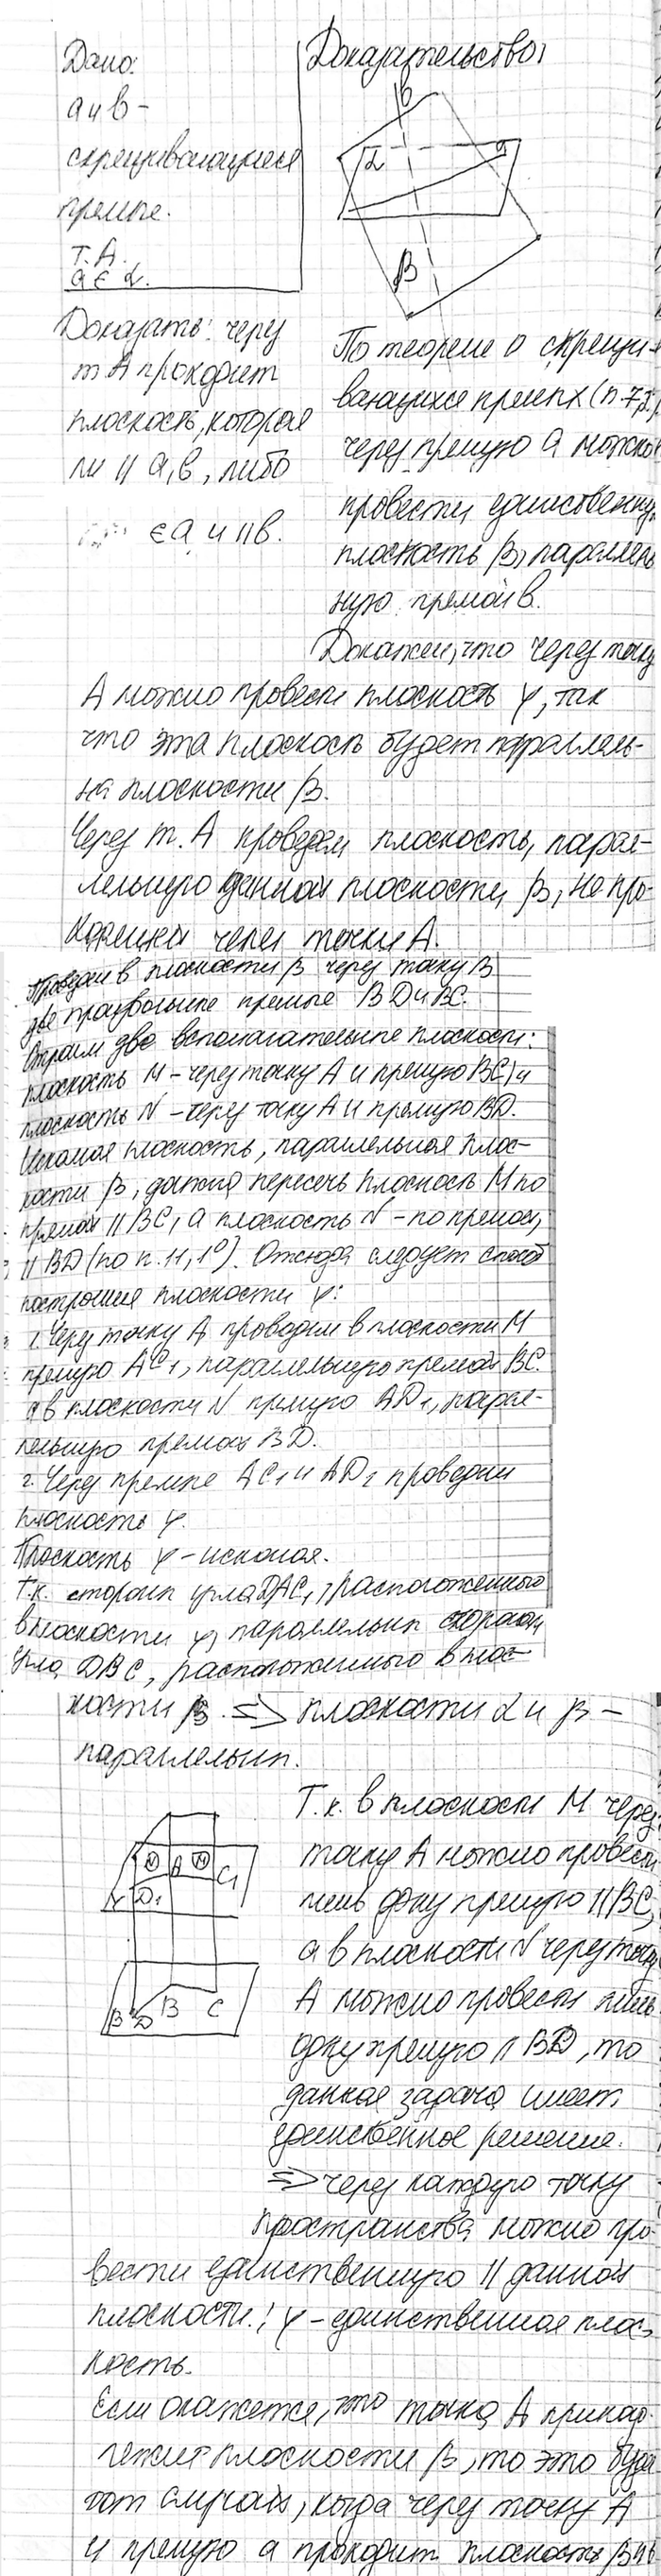 Дано:
a и b -
скрещивающиеся
прямые.
т. A.
a ∈ α.
Доказать: через
т A проходит
плоскость, которая
ли || a, b, либо
∈ a и || b.
Доказательство:
b
α
a
β
По теореме о скрещи-
вающихся прямых (п 7,
через прямую a можно
провести единственну
плоскость β, параллель
ную прямой b.
Докажем, что через точку
A можно провести плоскость γ, так
что эта плоскость будет параллель-
на плоскости β.
Через т. A проведем плоскость, парал-
лельную данной плоскости β, не про-
ходящей через точку A.
Проведем в плоскости β через точку B
две произвольные прямые BD и BC.
Строим две вспомогательные плоскости:
плоскость M - через точку A и прямую BC, и
плоскость N - через точку A и прямую BD.
Искомая плоскость, параллельная плос-
кости β, должна пересечь плоскость M по
прямой || BC, а плоскость N - по прямой,
|| BD (по п. 11, 1°). Отсюда следует способ
построения плоскости γ:
1. Через точку A проводим в плоскости M
прямую AC₁, параллельную прямой BC.
а в плоскости N прямую AD₁, парал-
лельную прямой BD.
2. Через прямые AC₁ и AD₁ проводим
плоскость γ.
Плоскость γ - искомая.
Т.к. стороны угла DAC₁, расположенного
в плоскости γ, параллельны сторонам
угла DBC, расположенного в плос-
кости β. => плоскости α и β -
параллельны.
N A M C₁
γ D₁
β D B C
Т.к. в плоскости M через
точку A можно провести
лишь одну прямую || BC,
а в плоскости N через точку
A можно провести лишь
одну прямую || BD, то
данная задача имеет
единственное решение.
=> через каждую точку
пространства можно про-
вести единственную || данной
плоскости.; γ - единственная плос-
кость.
Если окажется, что точка A принад-
лежит плоскости β, то это будет
тот случай, когда через точку A
и прямую a проходит плоскость β || b